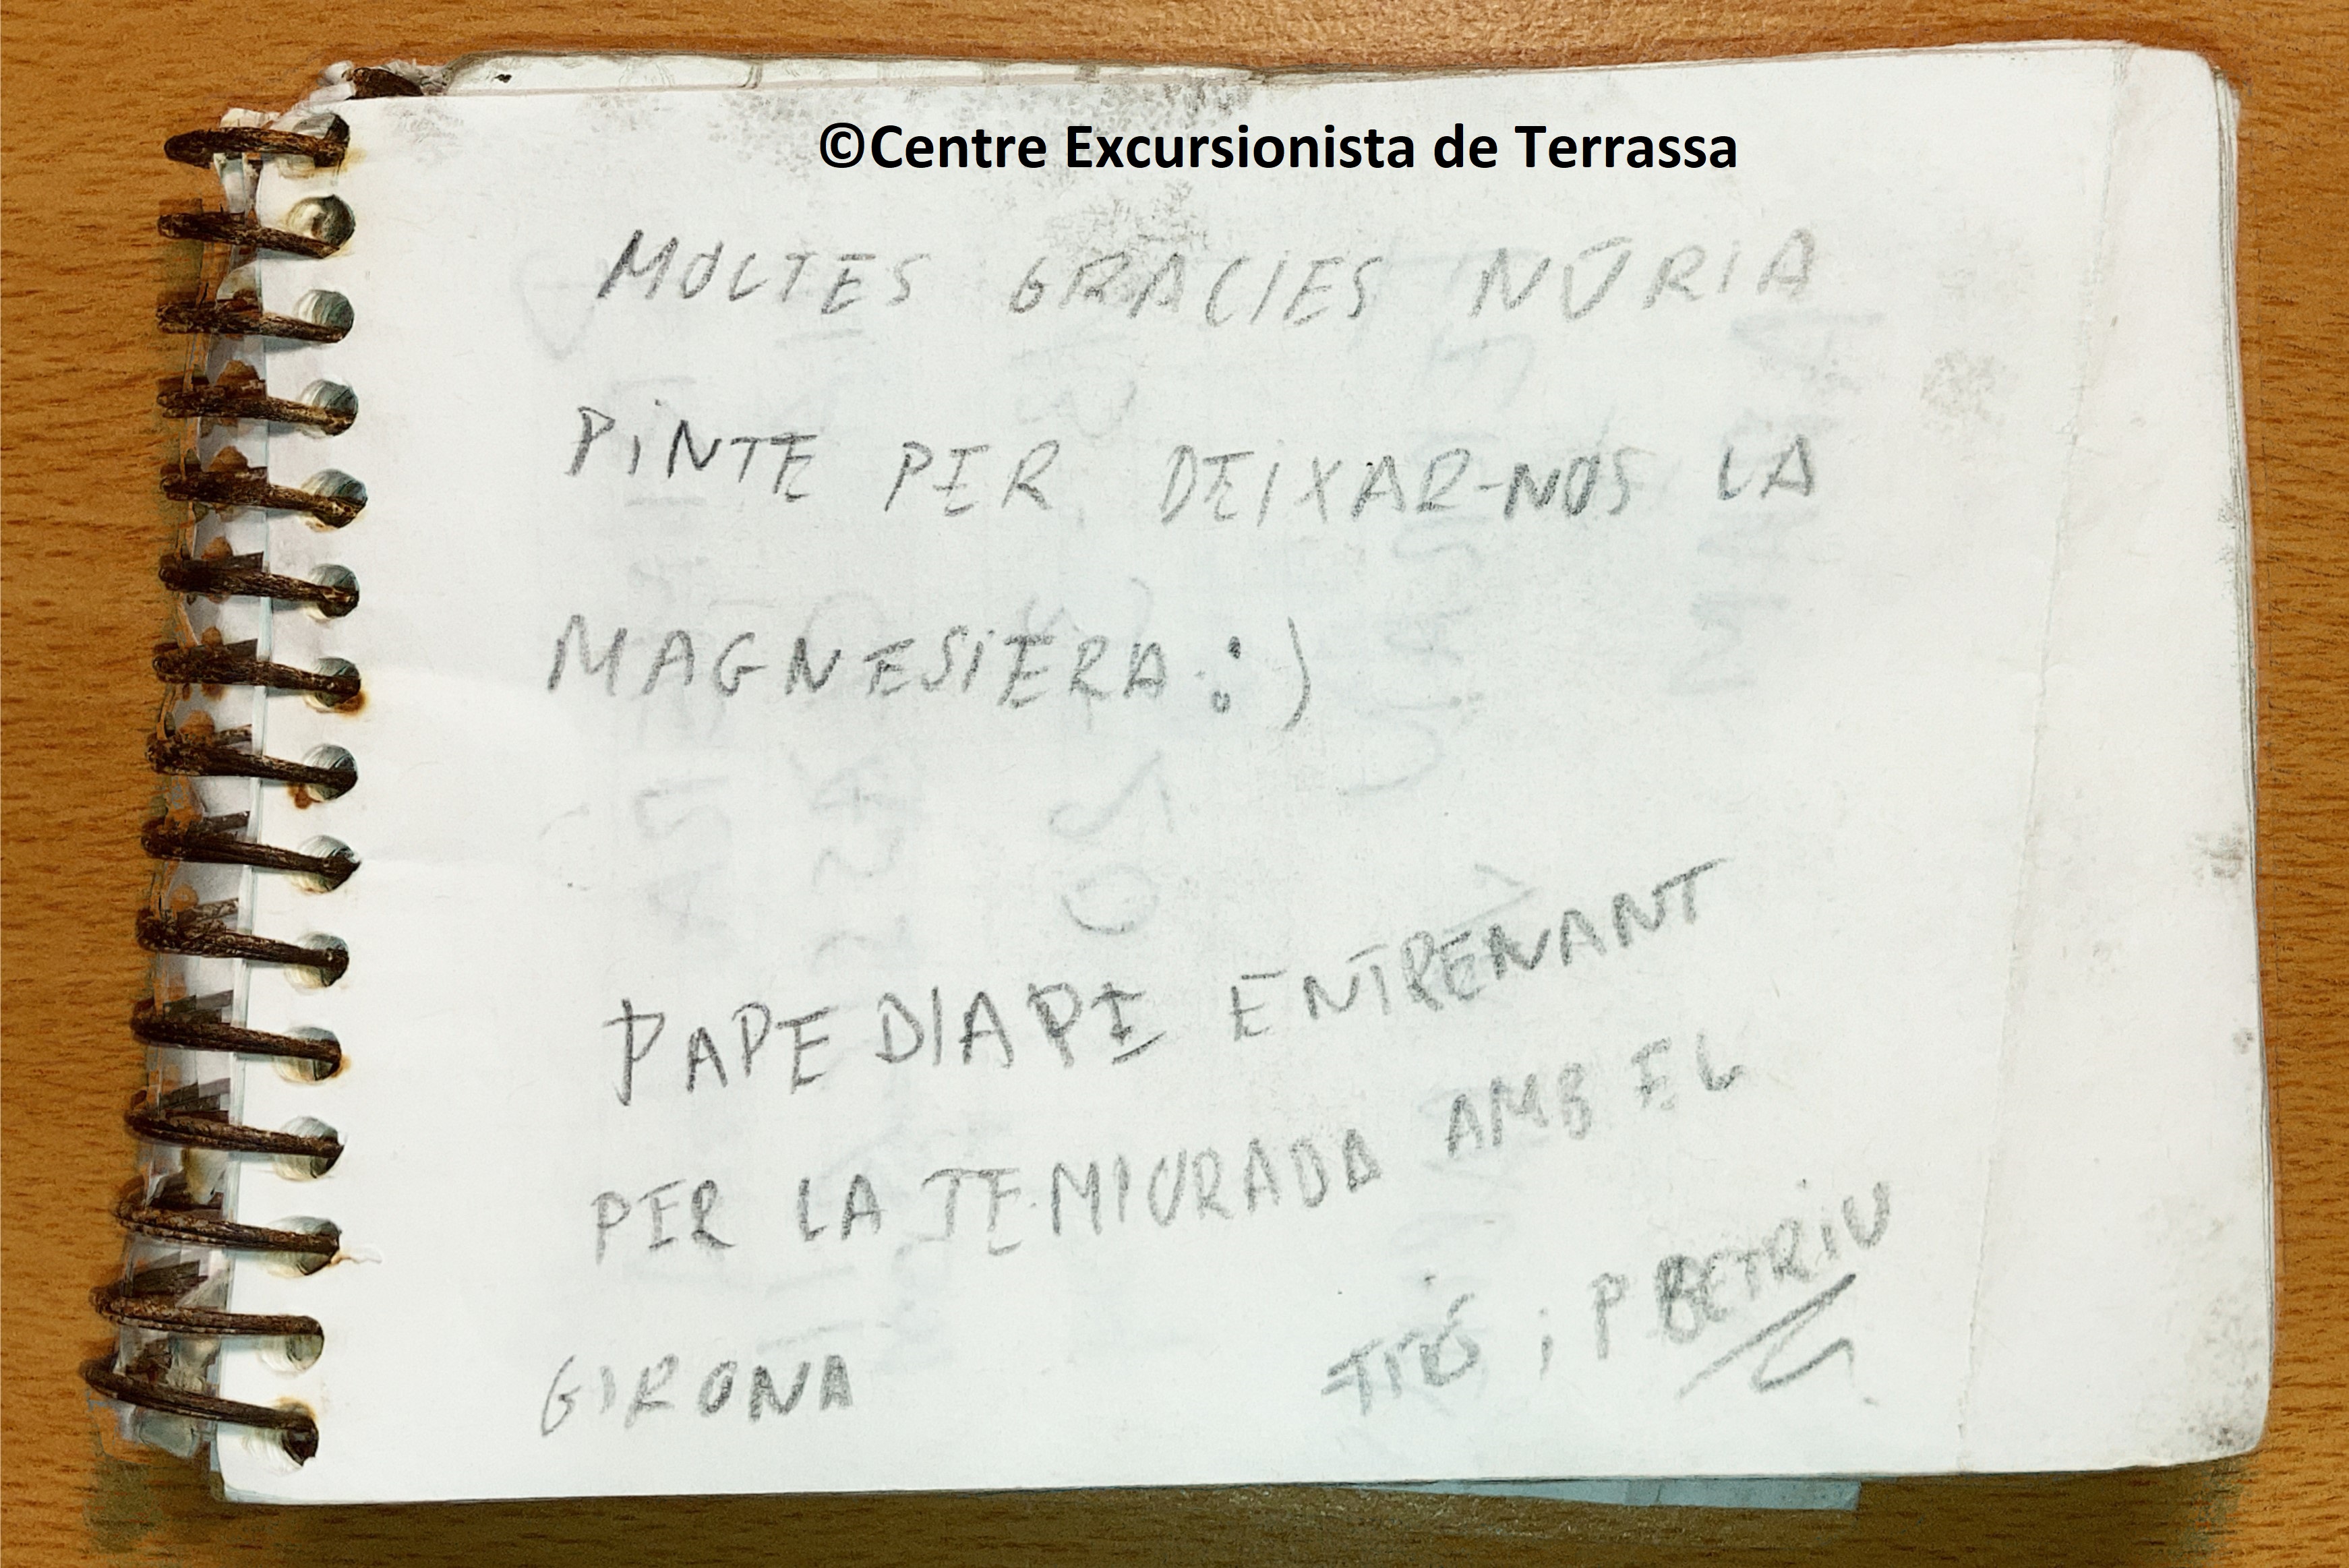 ©Centre Excursionista de Terrassa
MOLTES GRACIES NÚRIA
PINTE PER DEIXAR-NOS LA
MAGNESIERA :)
PAPEDIAPI ENTRENANT
PER LA TEMPURADA AMB EL
GIRONA
i P BETRIU